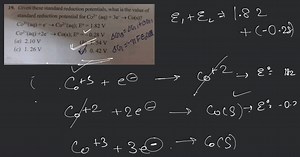 29. Given these standard reduction potentials, what is the value of
standard reduction potential for Co³⁺ (aq) + 3e⁻ → Co(s)
Co³⁺ (aq) + e⁻ → Co²⁺ (aq) E° = 1.82 V
Co²⁺ (aq) + 2e⁻ → Co(s) E° = -0.28 V
(a) 2.10 V
(c) 1.26 V (d) 0.42 V
E₁ + E₂ = 1.82
+ (-0.28)
Co⁺³ + e⊖ → Co⁺² → E°=
Co⁺² + 2e⊖ → Co(S) → E°=
Co⁺³ + 3e⊖ → Co(S)